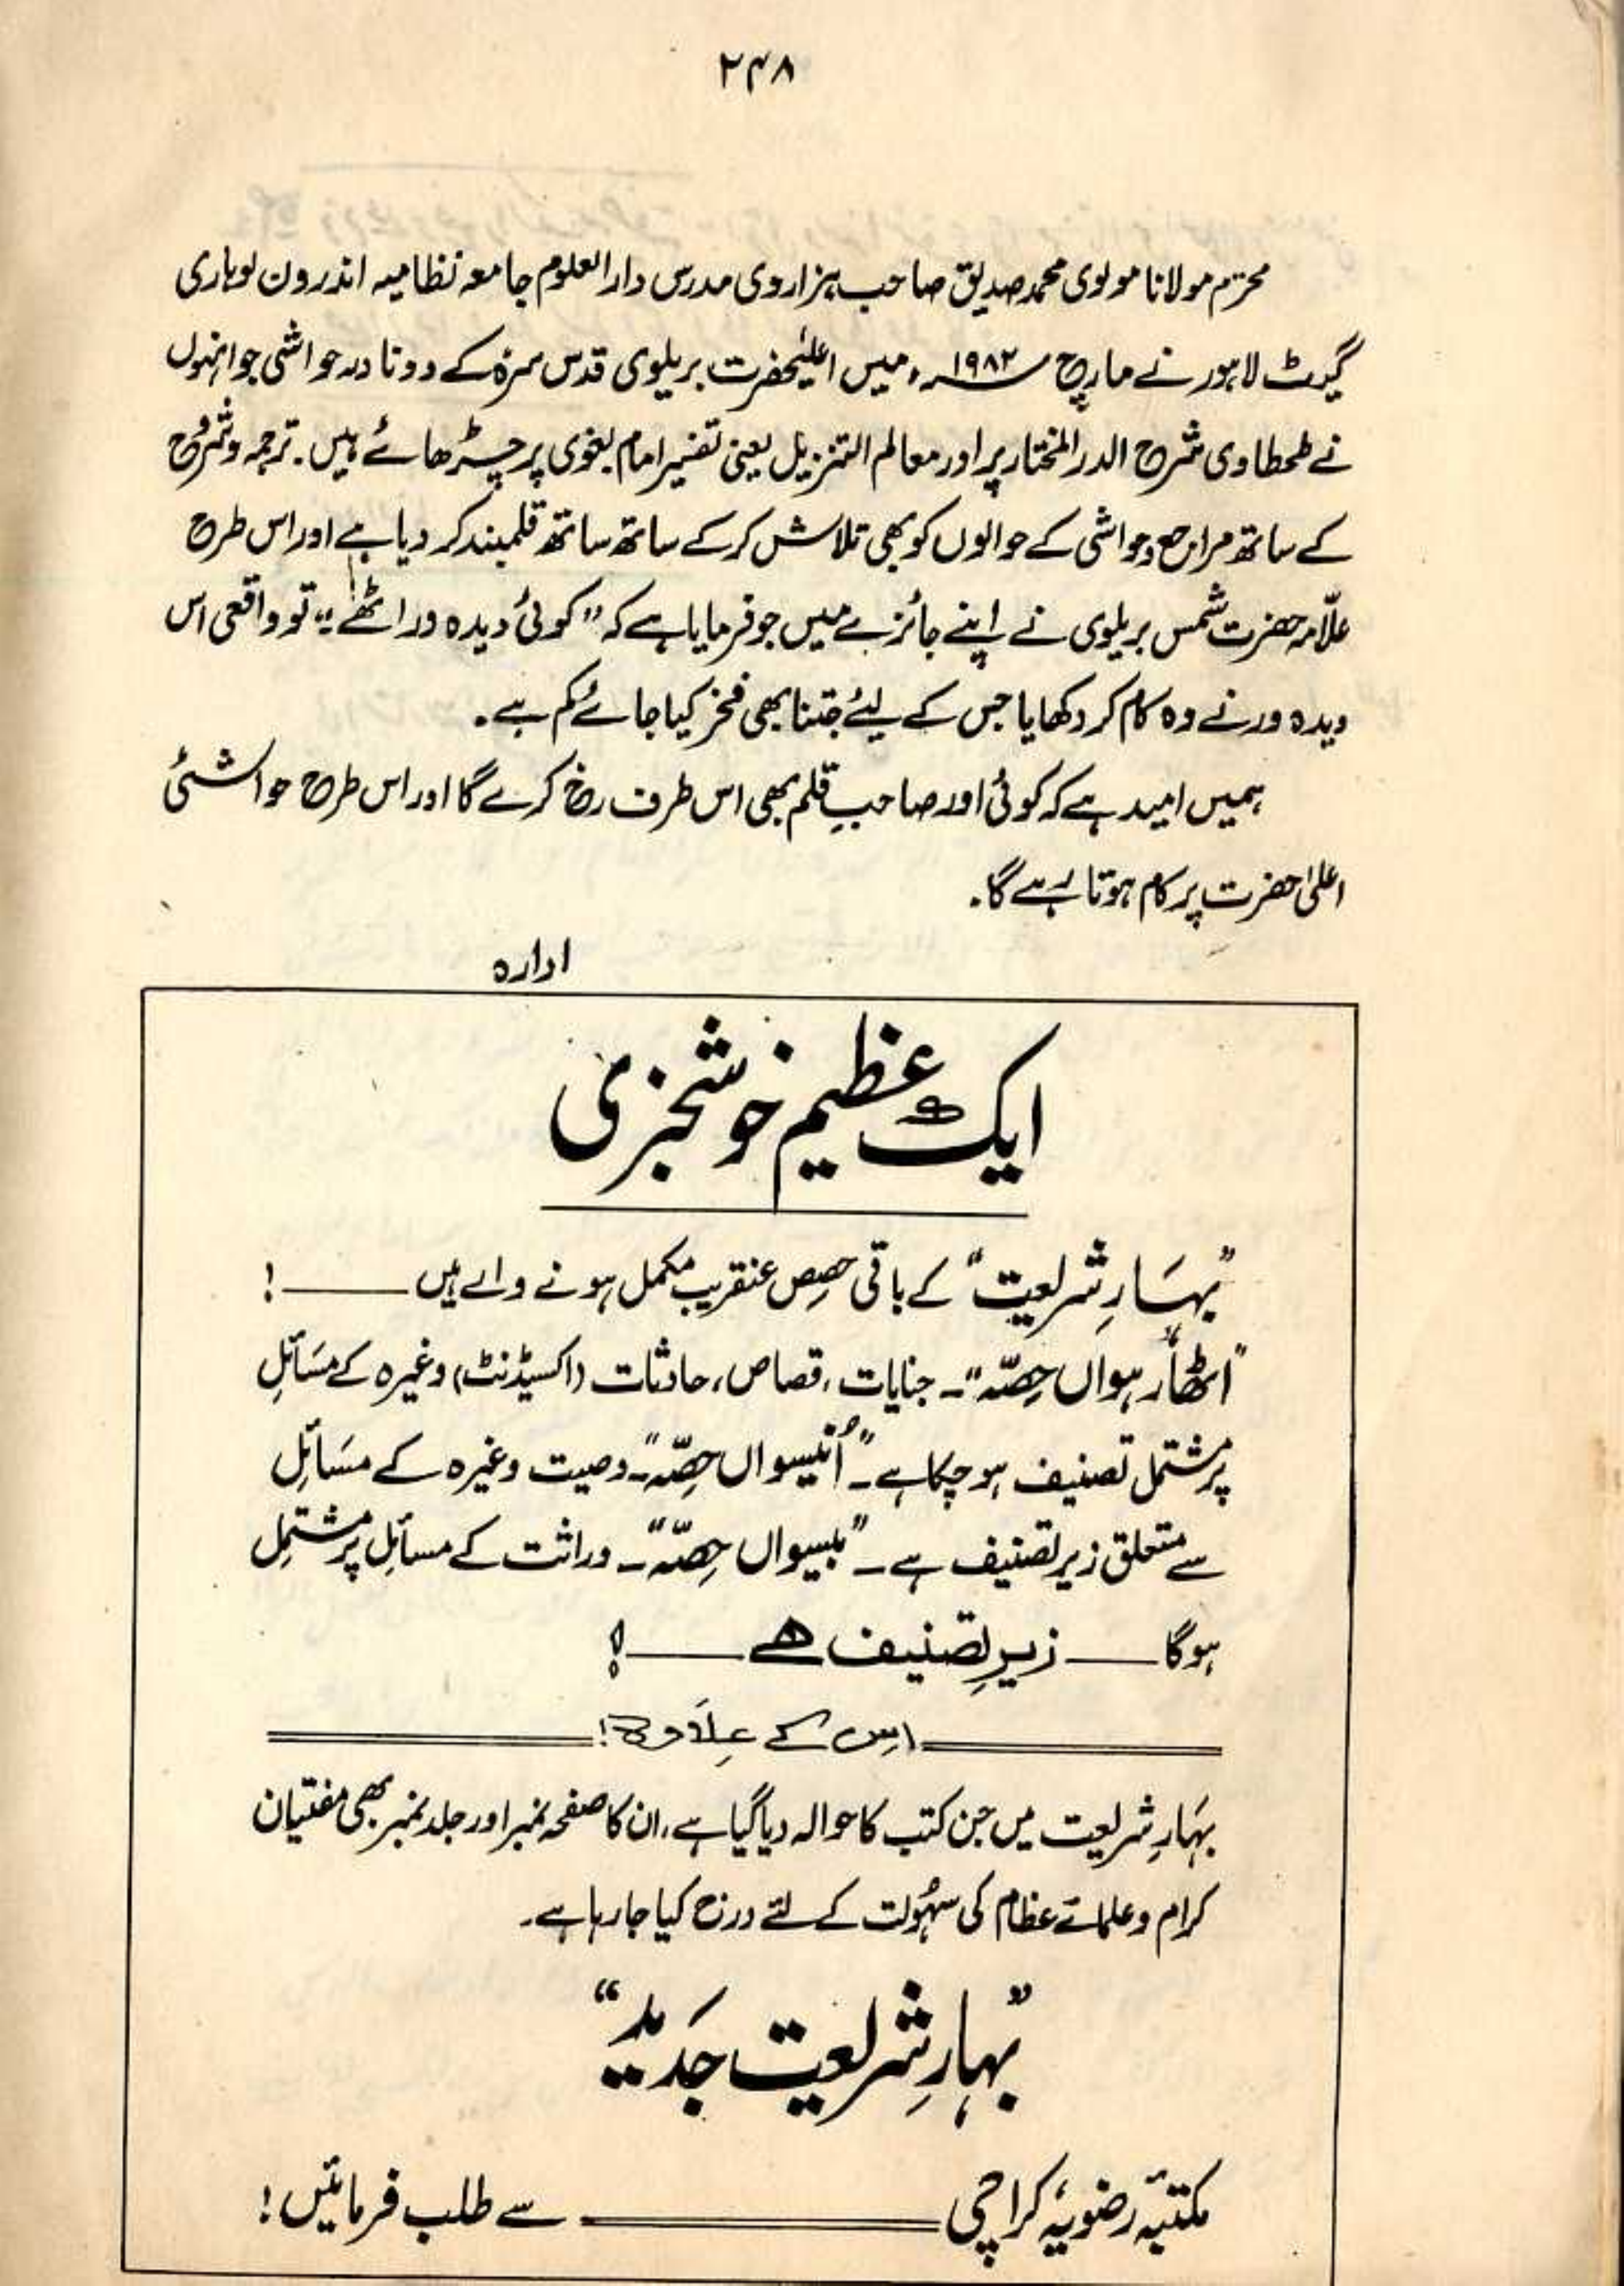 ۲۴۸
محترم مولانا مولوی محمد صدیق صاحب ہزاروی مدرس دارالعلوم جامعہ نظامیہ اندرون لوہاری
گیٹ لاہور نے مارچ ۱۹۸۲ء میں اعلیٰحضرت بریلوی قدس سرہٗ کے دو نادر حواشی جو انہوں
نے طحطاوی شرح الدر المختار پر اور معالم التنزیل یعنی تفسیر امام بغوی پر چڑھائے ہیں۔ ترجمہ و شرح
کے ساتھ مراجع و حواشی کے حوالوں کو بھی تلاش کر کے ساتھ ساتھ قلمبند کر دیا ہے اور اس طرح
علّامہ حضرت شمس بریلوی نے اپنے جائزے میں جو فرمایا ہے کہ ”کوئی دیدہ ور اٹھے“ تو واقعی اس
دیدہ ور نے وہ کام کر دکھایا جس کے لیئے جتنا بھی فخر کیا جائے کم ہے۔
ہمیں امید ہے کہ کوئی اور صاحبِ قلم بھی اس طرف رخ کرے گا اور اس طرح حواشئی
اعلیٰ حضرت پر کام ہوتا رہے گا۔
ادارہ
ایک عظیم خوشخبری
”بہَارِ شریعت“ کے باقی حصِص عنقریب مکمل ہونے والے ہیں ——— !
”اٹھارہواں حِصّہ“۔ جنایات، قصاص، حادثات (اکسیڈنٹ) وغیرہ کے مسَائلِ
پر مشتمل تصنیف ہو چکا ہے۔ ”اُنیسواں حِصّہ“۔ وصیت وغیرہ کے مسَائلِ
سے متعلق زیر تصنیف ہے۔ ”بیسواں حِصّہ“۔ وراثت کے مسائلِ پر مشتمِل
ہوگا —— زیرِ تصنیف ہے —— !
اِس کے عِلاَوہ!
بہَارِ شریعت میں جن کتب کا حوالہ دیا گیا ہے، ان کا صفحہ نمبر اور جلد نمبر بھی مفتیان
کرام و علمائے عظام کی سہُولت کے لئے درج کیا جا رہا ہے۔
”بہارِ شریعت جَدید“
مکتبۂ رضویہ، کراچی ——— سے طلب فرمائیں!